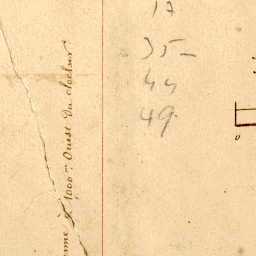 17
35-
44
49
à 1000m Ouest du clocher
0